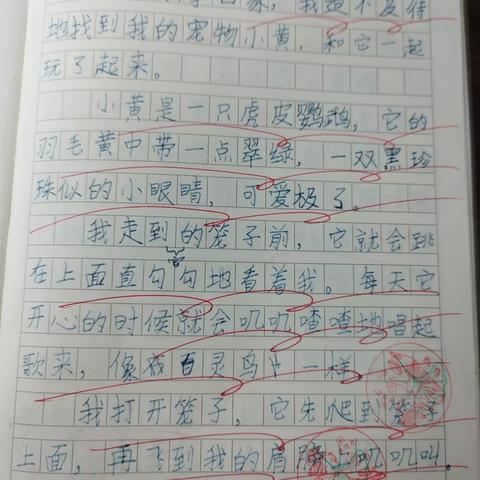 家，我迫不及待
地找到我的宠物小黄，和它一起
玩了起来。
小黄是一只虎皮鹦鹉，它的
羽毛黄中带一点翠绿，一双黑珍
珠似的小眼睛，可爱极了。
我走到它的笼子前，它就会跳
在上面直勾勾地看着我。每天它
开心的时候就会叽叽喳喳地唱起
歌来，像夜百灵鸟一样。
我打开笼子，它先爬到笼子
上面，再飞到我的肩膀上叽叽叫。